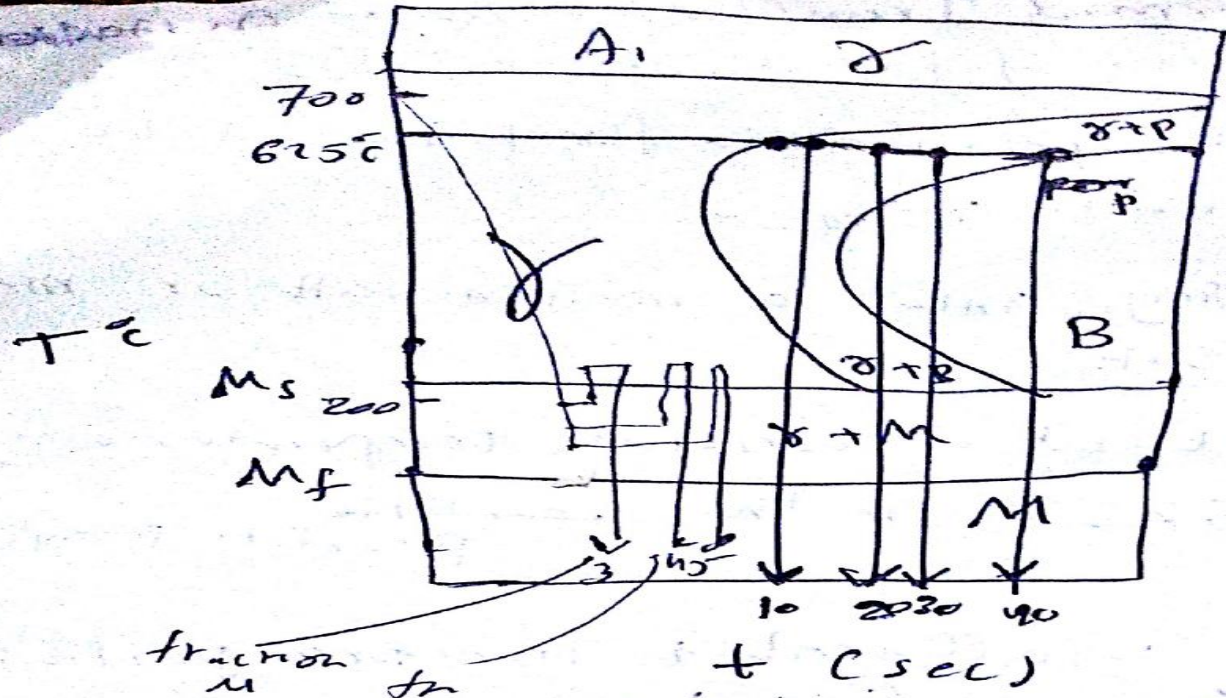 A₁ γ
700
625°C
γ+P
P
T °C
B
Ms 200
γ+B
γ+M
Mf
M
3 4 5 10 20 30 40
fraction
M
t (sec)